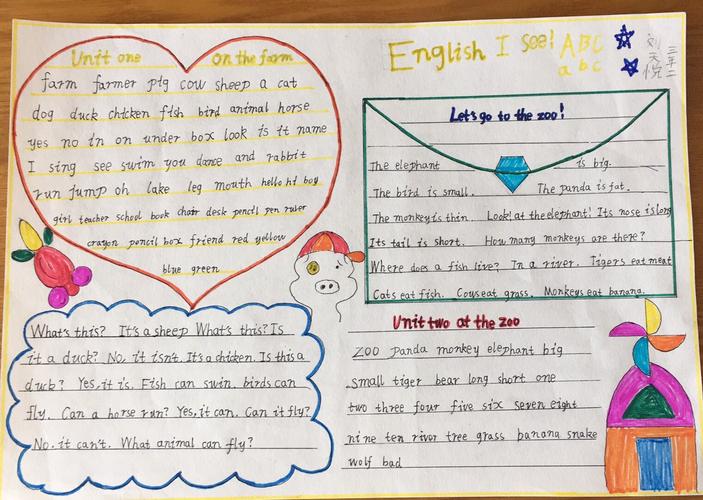 Unit one on the farm
farm farmer pig cow sheep a cat
dog duck chicken fish bird animal horse
yes no in on under box look is it name
I sing see swim you dance and rabbit
run jump oh lake leg mouth hello hi boy
girl teacher school book chair desk pencil pen ruler
crayon pencil box friend red yellow
blue green
English I see! ABC
abc
三年二
刘天悦
Let's go to the zoo!
The elephant is big.
The bird is small. The panda is fat.
The monkey is thin. Look! at the elephant! Its nose is long
Its tail is short. How many monkeys are there?
Where does a fish live? In a river. Tigers eat meat
Cats eat fish. Cows eat grass. Monkeys eat banana.
What's this? It's a sheep What's this? Is
it a duck? No, it isn't. It's a chicken. Is this a
duck? Yes, it is. Fish can swin. birds can
fly. Can a horse run? Yes, it can. Can it fly?
No. it can't. What animal can fly?
Unit two at the zoo
zoo panda monkey elephant big
small tiger bear long short one
two three four five six seven eight
nine ten river tree grass banana snake
wolf bad